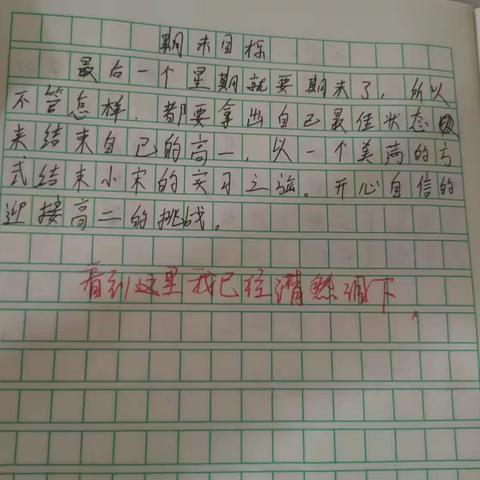 期末目标
最后一个星期就要期末了，所以
不管怎样，都要拿出自己最佳状态
来结束自己的高一，以一个美满的方
式结束小宋的实习之旅。开心自信的
迎接高二的挑战。
看到这里我已经潸然泪下